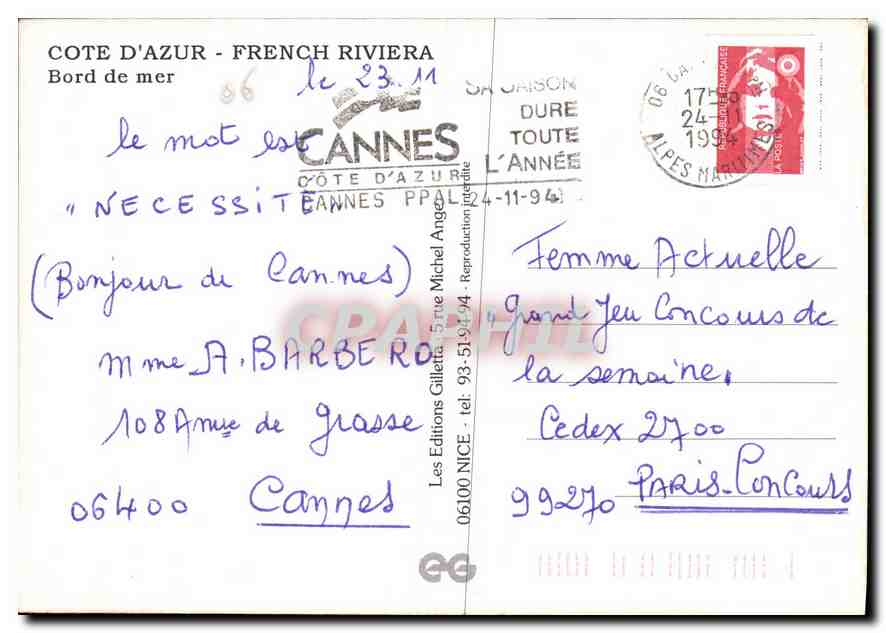 COTE D'AZUR - FRENCH RIVIERA
Bord de mer
06
le 23.11
le mot est
"NECESSITE"
(Bonjour de Cannes)
Mme A. BARBERO
108 Anue de Grasse
06400 Cannes
CANNES
CÔTE D'AZUR
CANNES PPAL 24-11-94
SA SAISON
DURE
TOUTE
L'ANNÉE
24-11
1994
ALPES MARITIMES
RÉPUBLIQUE FRANÇAISE
LA POSTE
Les Editions Gilletta - 5 rue Michel Ange
06100 NICE - tel: 93-51-94-94 - Reproduction interdite
CPAPHIL
Femme Actuelle
"Grand Jeu Concours de
la semaine.
Cedex 2700
99270 PARIS-Concours
EG